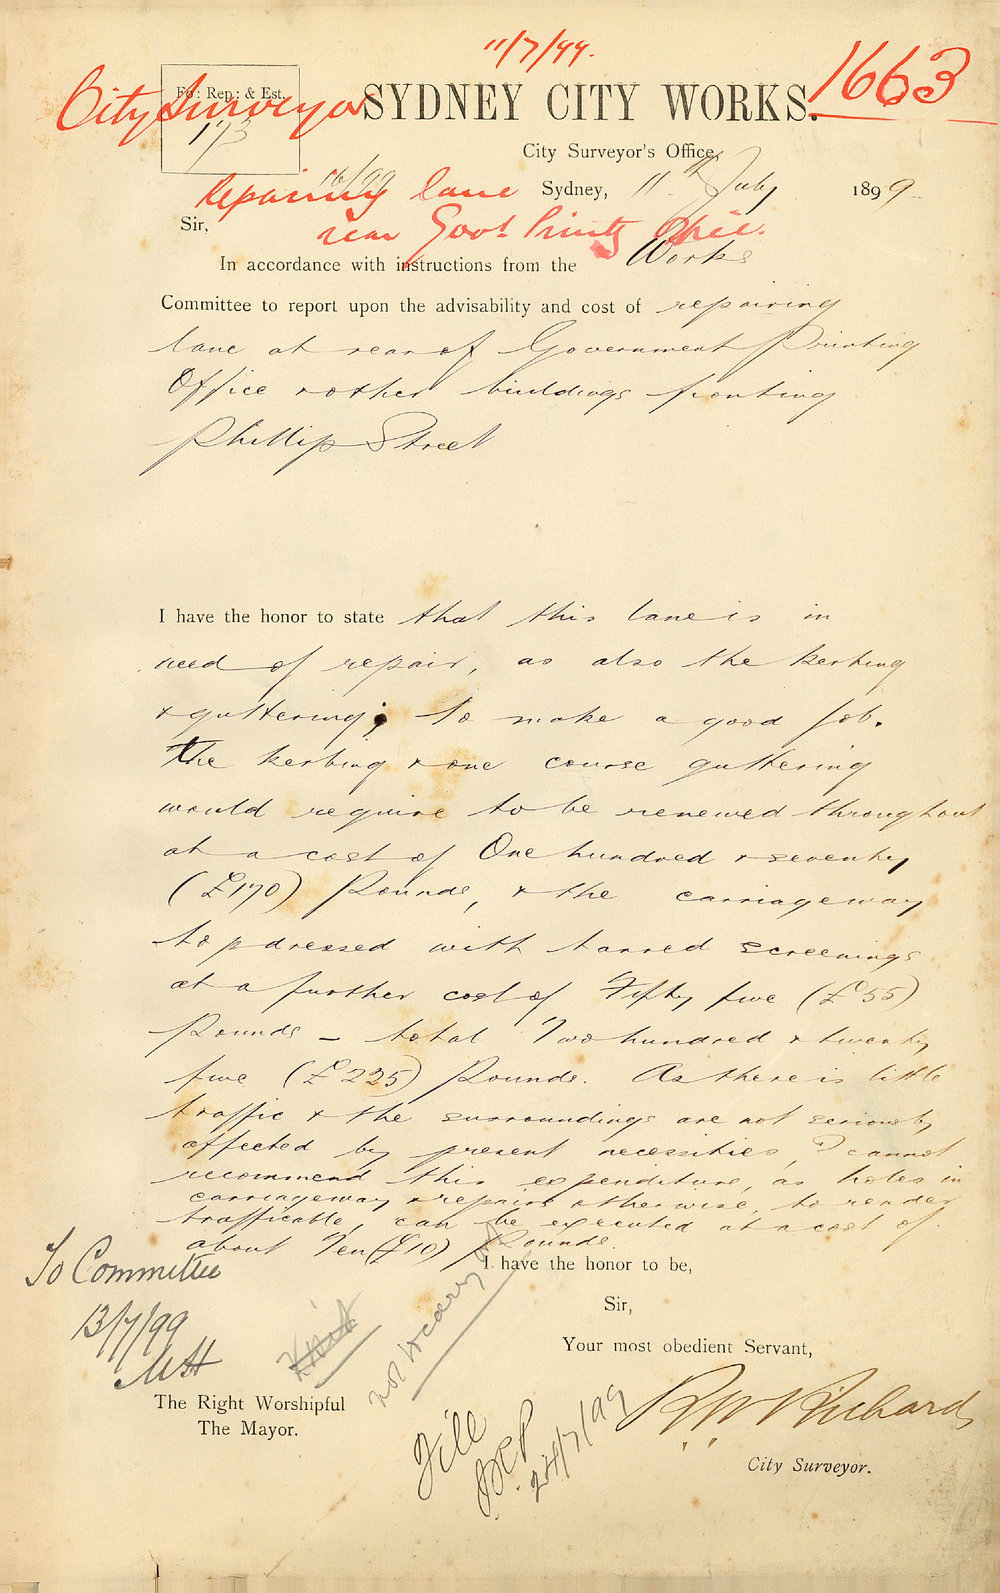 11/7/99.
1663
City Surveyor
Fo: Rep: & Est.
173
16/99
SYDNEY CITY WORKS.
City Surveyor's Office,
Sydney, 11th July 1899.
Repairing lane
rear Govt Printg Office.
Sir,
In accordance with instructions from the Works
Committee to report upon the advisability and cost of repairing
lane at rear of Government Printing
Office & other buildings fronting
Phillip Street
I have the honor to state that this lane is in
need of repair, as also the kerbing
& guttering; to make a good job.
The kerbing & one course guttering
would require to be renewed throughout
at a cost of One hundred & seventy
(£170) Pounds, & the carriageway
topdressed with tarred screenings
at a further cost of Fifty five (£55)
Pounds – total Two hundred & twenty
five (£225) Pounds. As there is little
traffic & the surroundings are not seriously
affected by present necessities, I cannot
recommend this expenditure, as holes in
carriageway & repairs otherwise, to render
trafficable, can be executed at a cost of
about Ten (£10) Pounds.
I have the honor to be,
Sir,
Your most obedient Servant,
To Committee
13/7/99
The Right Worshipful
The Mayor.
Visit
not
File
24/7/99
R W Richards
City Surveyor.